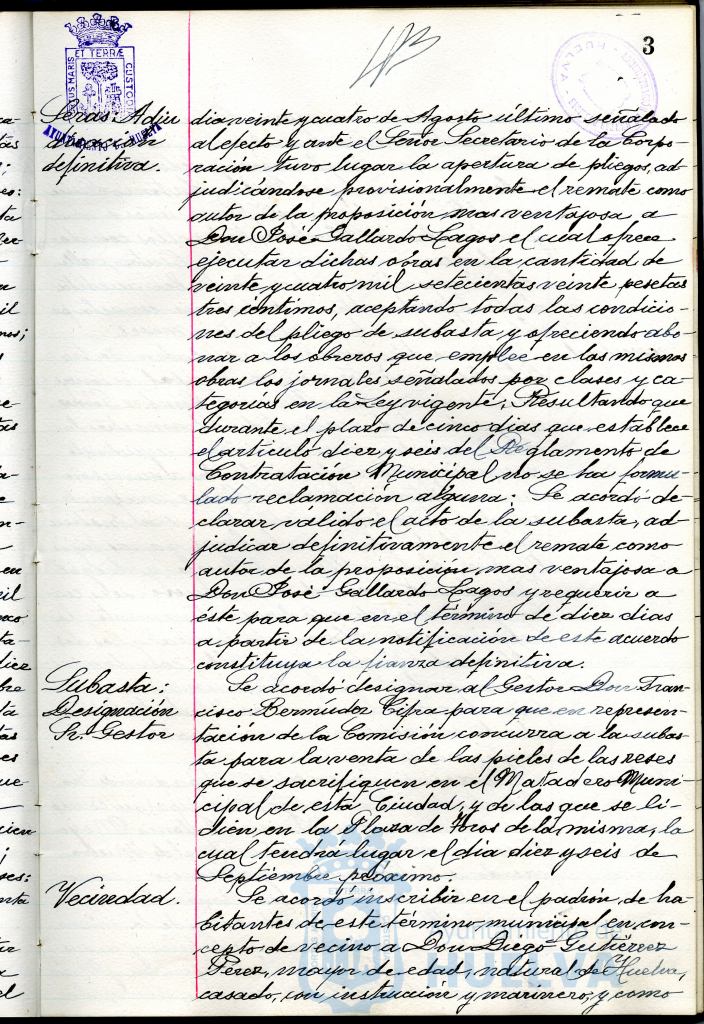 3
ET TERRÆ
CUSTODIA
AYUNTAMIENTO DE HUELVA
HUELVA
Adju
dicación
definitiva.
dia veinte y cuatro de Agosto último señalado
al efecto y ante el Señor Secretario de la Corpo-
ración tuvo lugar la apertura de pliegos, ad-
judicándose provisionalmente el remate como
autor de la proposición mas ventajosa a
Don José Gallardo Lagos el cual ofrece
ejecutar dichas obras en la cantidad de
veinte y cuatro mil setecientas veinte pesetas
tres céntimos, aceptando todas las condicio-
nes del pliego de subasta y ofreciendo abo-
nar a los obreros que emplee en las mismas
obras los jornales señalados por clases y ca-
tegorías en la Ley vigente; Resultando que
durante el plazo de cinco dias que establece
el artículo diez y seis del Reglamento de
Contratación Municipal no se ha formu-
lado reclamación alguna: Se acordó de-
clarar válido el acto de la subasta, ad-
judicar definitivamente el remate como
autor de la proposición mas ventajosa a
Don José Gallardo Lagos y requerir a
éste para que en el término de diez dias
a partir de la notificación de este acuerdo
constituya la fianza definitiva.
Subasta:
Designación
Sr. Gestor
Se acordó designar al Gestor Don Fran-
cisco Bermudez Cifra para que en represen-
tación de la Comisión concurra a la subas-
ta para la venta de las pieles de las reses
que se sacrifiquen en el Matadero Muni-
cipal de esta Ciudad, y de las que se li-
dien en la Plaza de Toros de la misma, la
cual tendrá lugar el dia diez y seis de
Septiembre próximo.
Vecindad.
Se acordó inscribir en el padrón de ha-
bitantes de este término municipal en con-
cepto de vecino a Don Diego Gutiérrez
Pérez, mayor de edad, natural de Huelva,
casado, con instrucción y marinero, y como
Ayuntamiento de
HUELVA